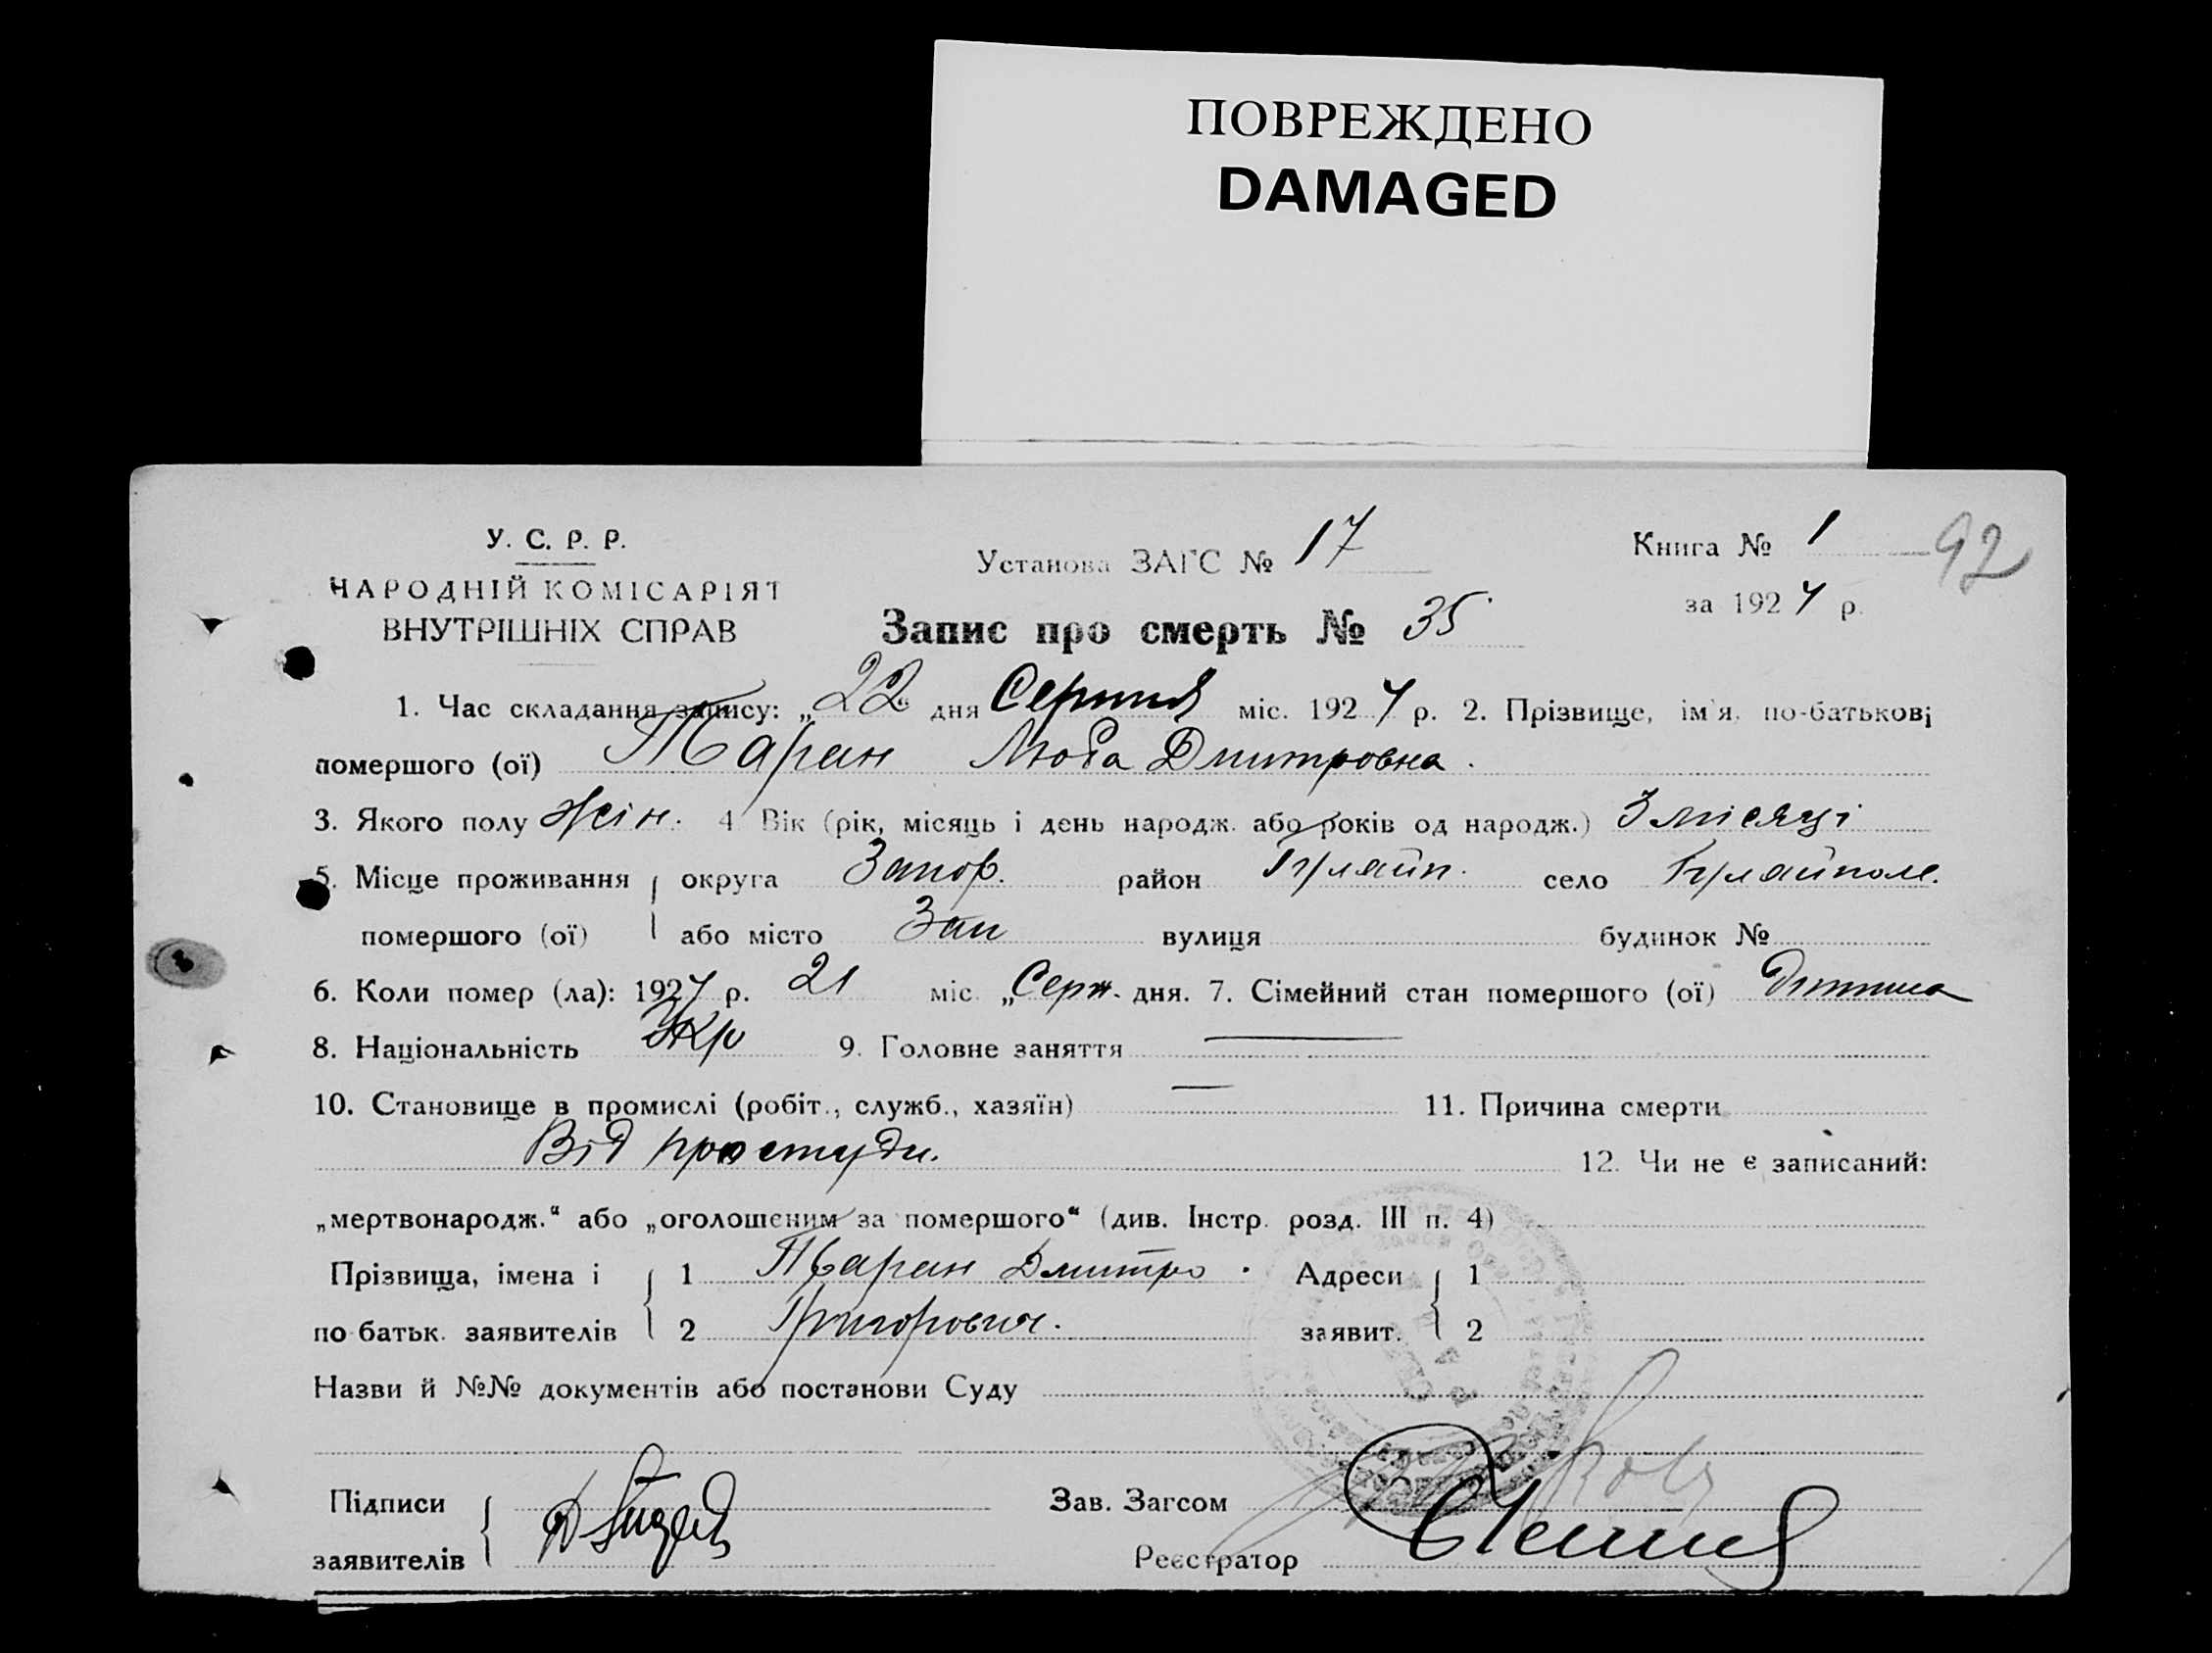 ПОВРЕЖДЕНО
DAMAGED
У. С. Р. Р.
НАРОДНІЙ КОМІСАРІЯТ
ВНУТРІШНІХ СПРАВ
Установа ЗАГС № 17
Книга № 1
92
за 1927 р.
Запис про смерть № 35
1. Час складання запису: „22" дня Серпня міс. 1927 р. 2. Прізвище, ім'я, по-батькові
помершого (ої) Таран Люба Дмитровна.
3. Якого полу жін. 4 Вік (рік, місяць і день народж. або років од народж.) 3 місяці
5. Місце проживання округа Запор. район Гуляйп. село Гуляйполе.
помершого (ої) або місто Зап вулиця будинок №
6. Коли помер (ла): 1927 р. 21 міс. „Серп. дня. 7. Сімейний стан помершого (ої) Дитина
8. Національність Укр 9. Головне заняття —
10. Становище в промислі (робіт., служб., хазяїн) — 11. Причина смерти
Від простуди. 12. Чи не є записаний:
„мертвонародж.“ або „оголошеним за помершого“ (див. Інстр. розд. III п. 4)
Прізвища, імена і 1 Таран Дмитро. Адреси 1
по батьк. заявителів 2 Григорович. заявит. 2
Назви й №№ документів або постанови Суду
Підписи
Зав. Загсом
заявителів
Реєстратор